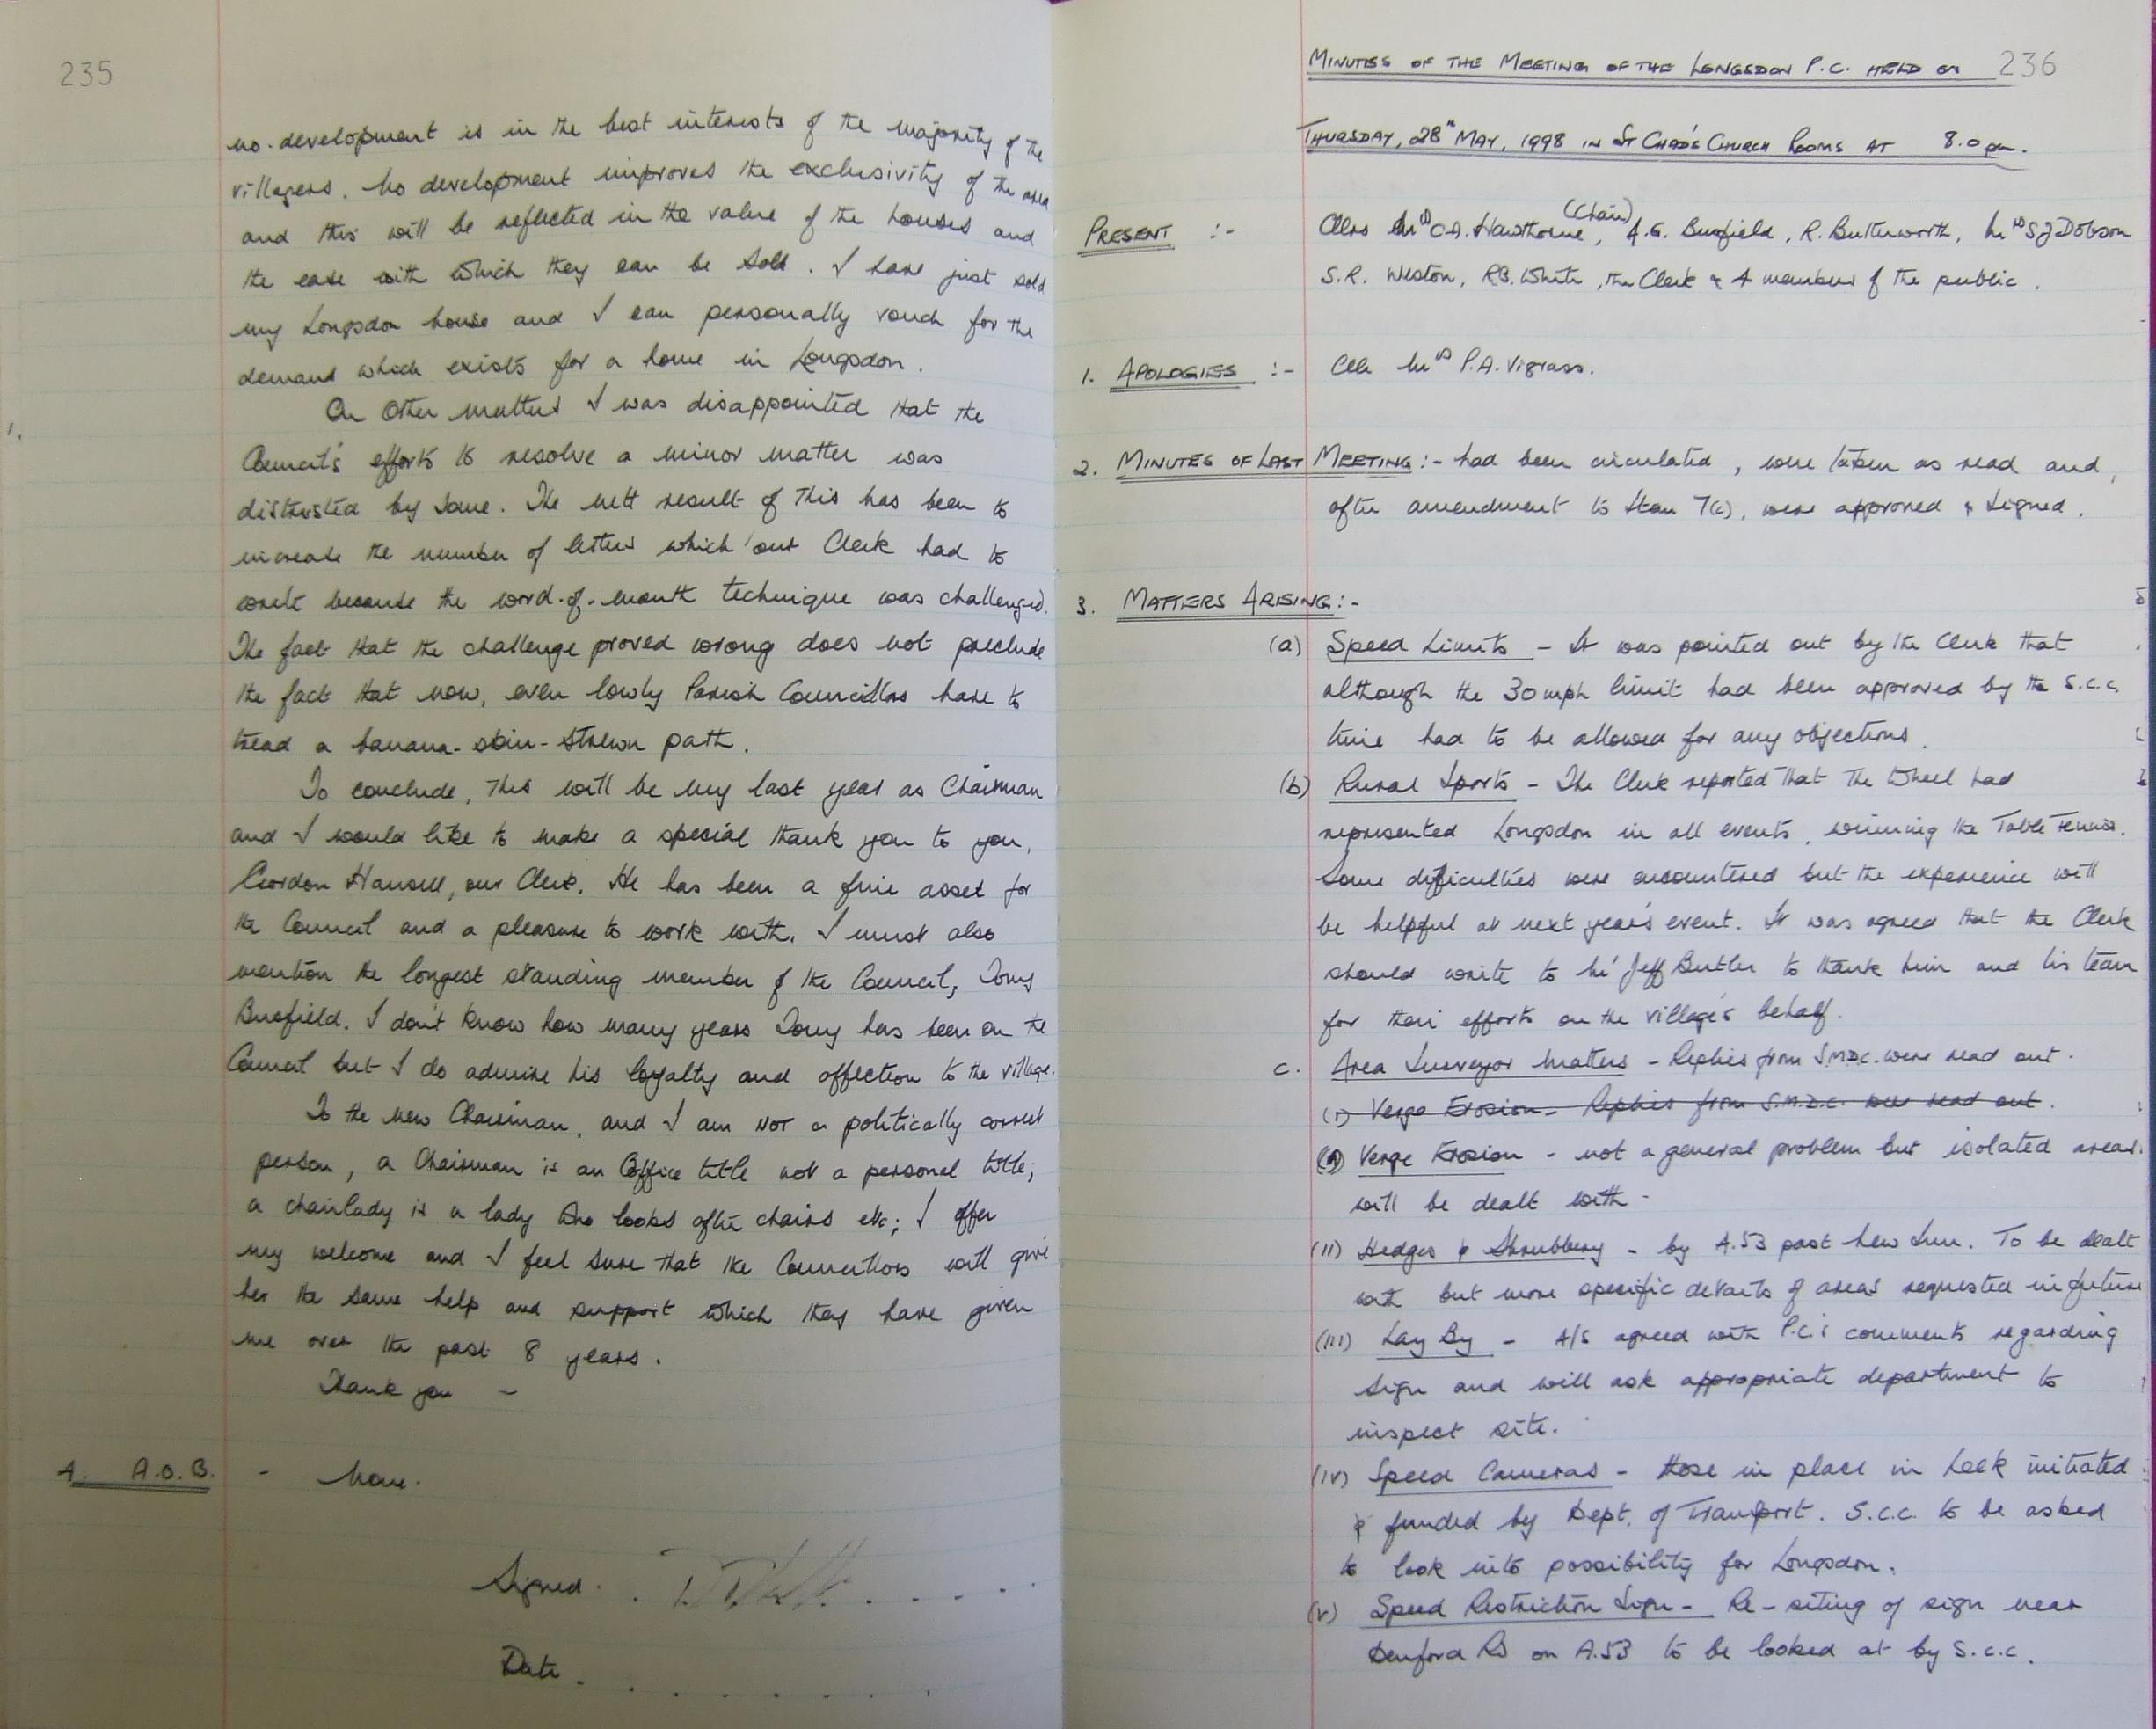 235
no development is in the best interests of the majority of the
villagers. No development improves the exclusivity of the area
and this will be reflected in the value of the houses and
the ease with which they can be sold. I have just sold
my Longsdon house and I can personally vouch for the
demand which exists for a home in Longsdon.
On other matters I was disappointed that the
Council's efforts to resolve a minor matter was
distrusted by some. The nett result of this has been to
increase the number of letters which our Clerk had to
write because the word-of-mouth technique was challenged.
The fact that the challenge proved wrong does not preclude
the fact that now, even lowly Parish Councillors have to
tread a banana-skin-strewn path.
To conclude, this will be my last year as Chairman
and I would like to make a special thank you to you,
Gordon Hansell, our Clerk. He has been a fine asset for
the Council and a pleasure to work with. I must also
mention the longest standing member of the Council, Tony
Busfield. I don't know how many years Tony has been on the
Council but I do admire his loyalty and affection to the village.
To the new Chairman, and I am NOT a politically correct
person, a Chairman is an Office title not a personal title;
a chairlady is a lady who looks after chairs etc; I offer
my welcome and I feel sure that the Councillors will give
her the same help and support which they have given
me over the past 8 years.
Thank you -
4. A.O.B. - None.
Signed.
Date.
MINUTES OF THE MEETING OF THE LONGSDON P.C. HELD ON 236
THURSDAY, 28th MAY, 1998 IN ST CHAD'S CHURCH ROOMS AT 8.0 pm.
PRESENT :- Cllrs Mrs C.A. Hawthorne (Chair), A.G. Busfield, R. Butterworth, Mrs S J Dobson
S.R. Weston, R.B. White, the Clerk & 4 members of the public.
1. APOLOGIES :- Cllr Mrs P.A. Vigrass.
2. MINUTES OF LAST MEETING :- had been circulated, were taken as read and,
after amendment to Item 7(c), were approved & signed.
3. MATTERS ARISING :-
(a) Speed Limits - It was pointed out by the Clerk that
although the 30 mph limit had been approved by the S.C.C.
time had to be allowed for any objections.
(b) Rural Sports - The Clerk reported that The Wheel had
represented Longsdon in all events, winning the Table Tennis.
Some difficulties were encountered but the experience will
be helpful at next year's event. It was agreed that the Clerk
should write to Mr Jeff Butler to thank him and his team
for their efforts on the village's behalf.
c. Area Surveyor Matters - Replies from S.M.D.C. were read out.
(i) Verge Erosion - Replies from S.M.D.C. were read out.
(i) Verge Erosion - not a general problem but isolated areas
will be dealt with -
(ii) Hedges & Shrubbery - by A.53 past New Inn. To be dealt
with but more specific details of areas requested in future
(iii) Lay By - A/S agreed with P.C.'s comments regarding
sign and will ask appropriate department to
inspect site.
(iv) Speed Cameras - those in place in Leek initiated
& funded by Dept. of Transport. S.C.C. to be asked
to look into possibility for Longsdon.
(v) Speed Restriction Sign - Re-siting of sign near
Denford Rd on A.53 to be looked at by S.C.C.